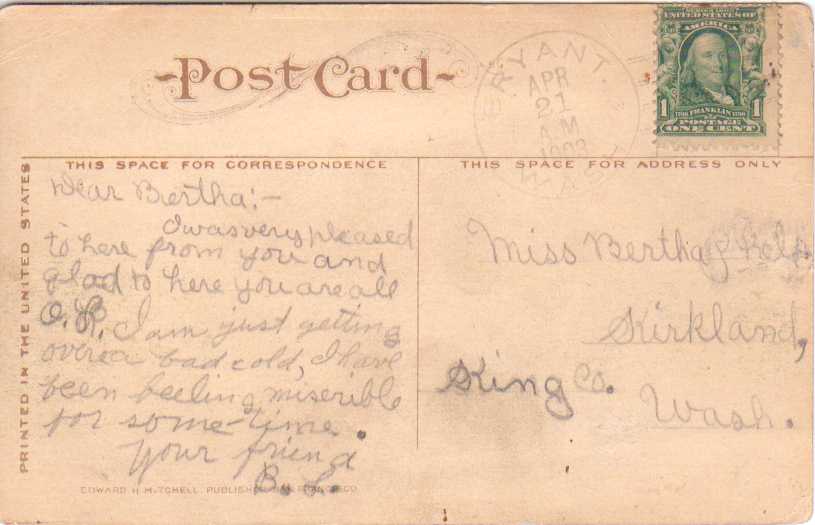 Post Card
SERIES 1902
UNITED STATES OF
AMERICA
1 FRANKLIN 1
POSTAGE
ONE CENT
BRYANT.
APR
21
A.M
WASH
THIS SPACE FOR CORRESPONDENCE
THIS SPACE FOR ADDRESS ONLY
PRINTED IN THE UNITED STATES
Dear Bertha:-
I was very pleased
to here from you and
glad to here you are all
O.K. I am just getting
over a bad cold, I have
been feeling miserible
for some-time.
Your friend
B. L.
Miss Bertha
Kirkland,
King Co.
Wash.
EDWARD H. MITCHELL PUBLISHER SAN FRANCISCO